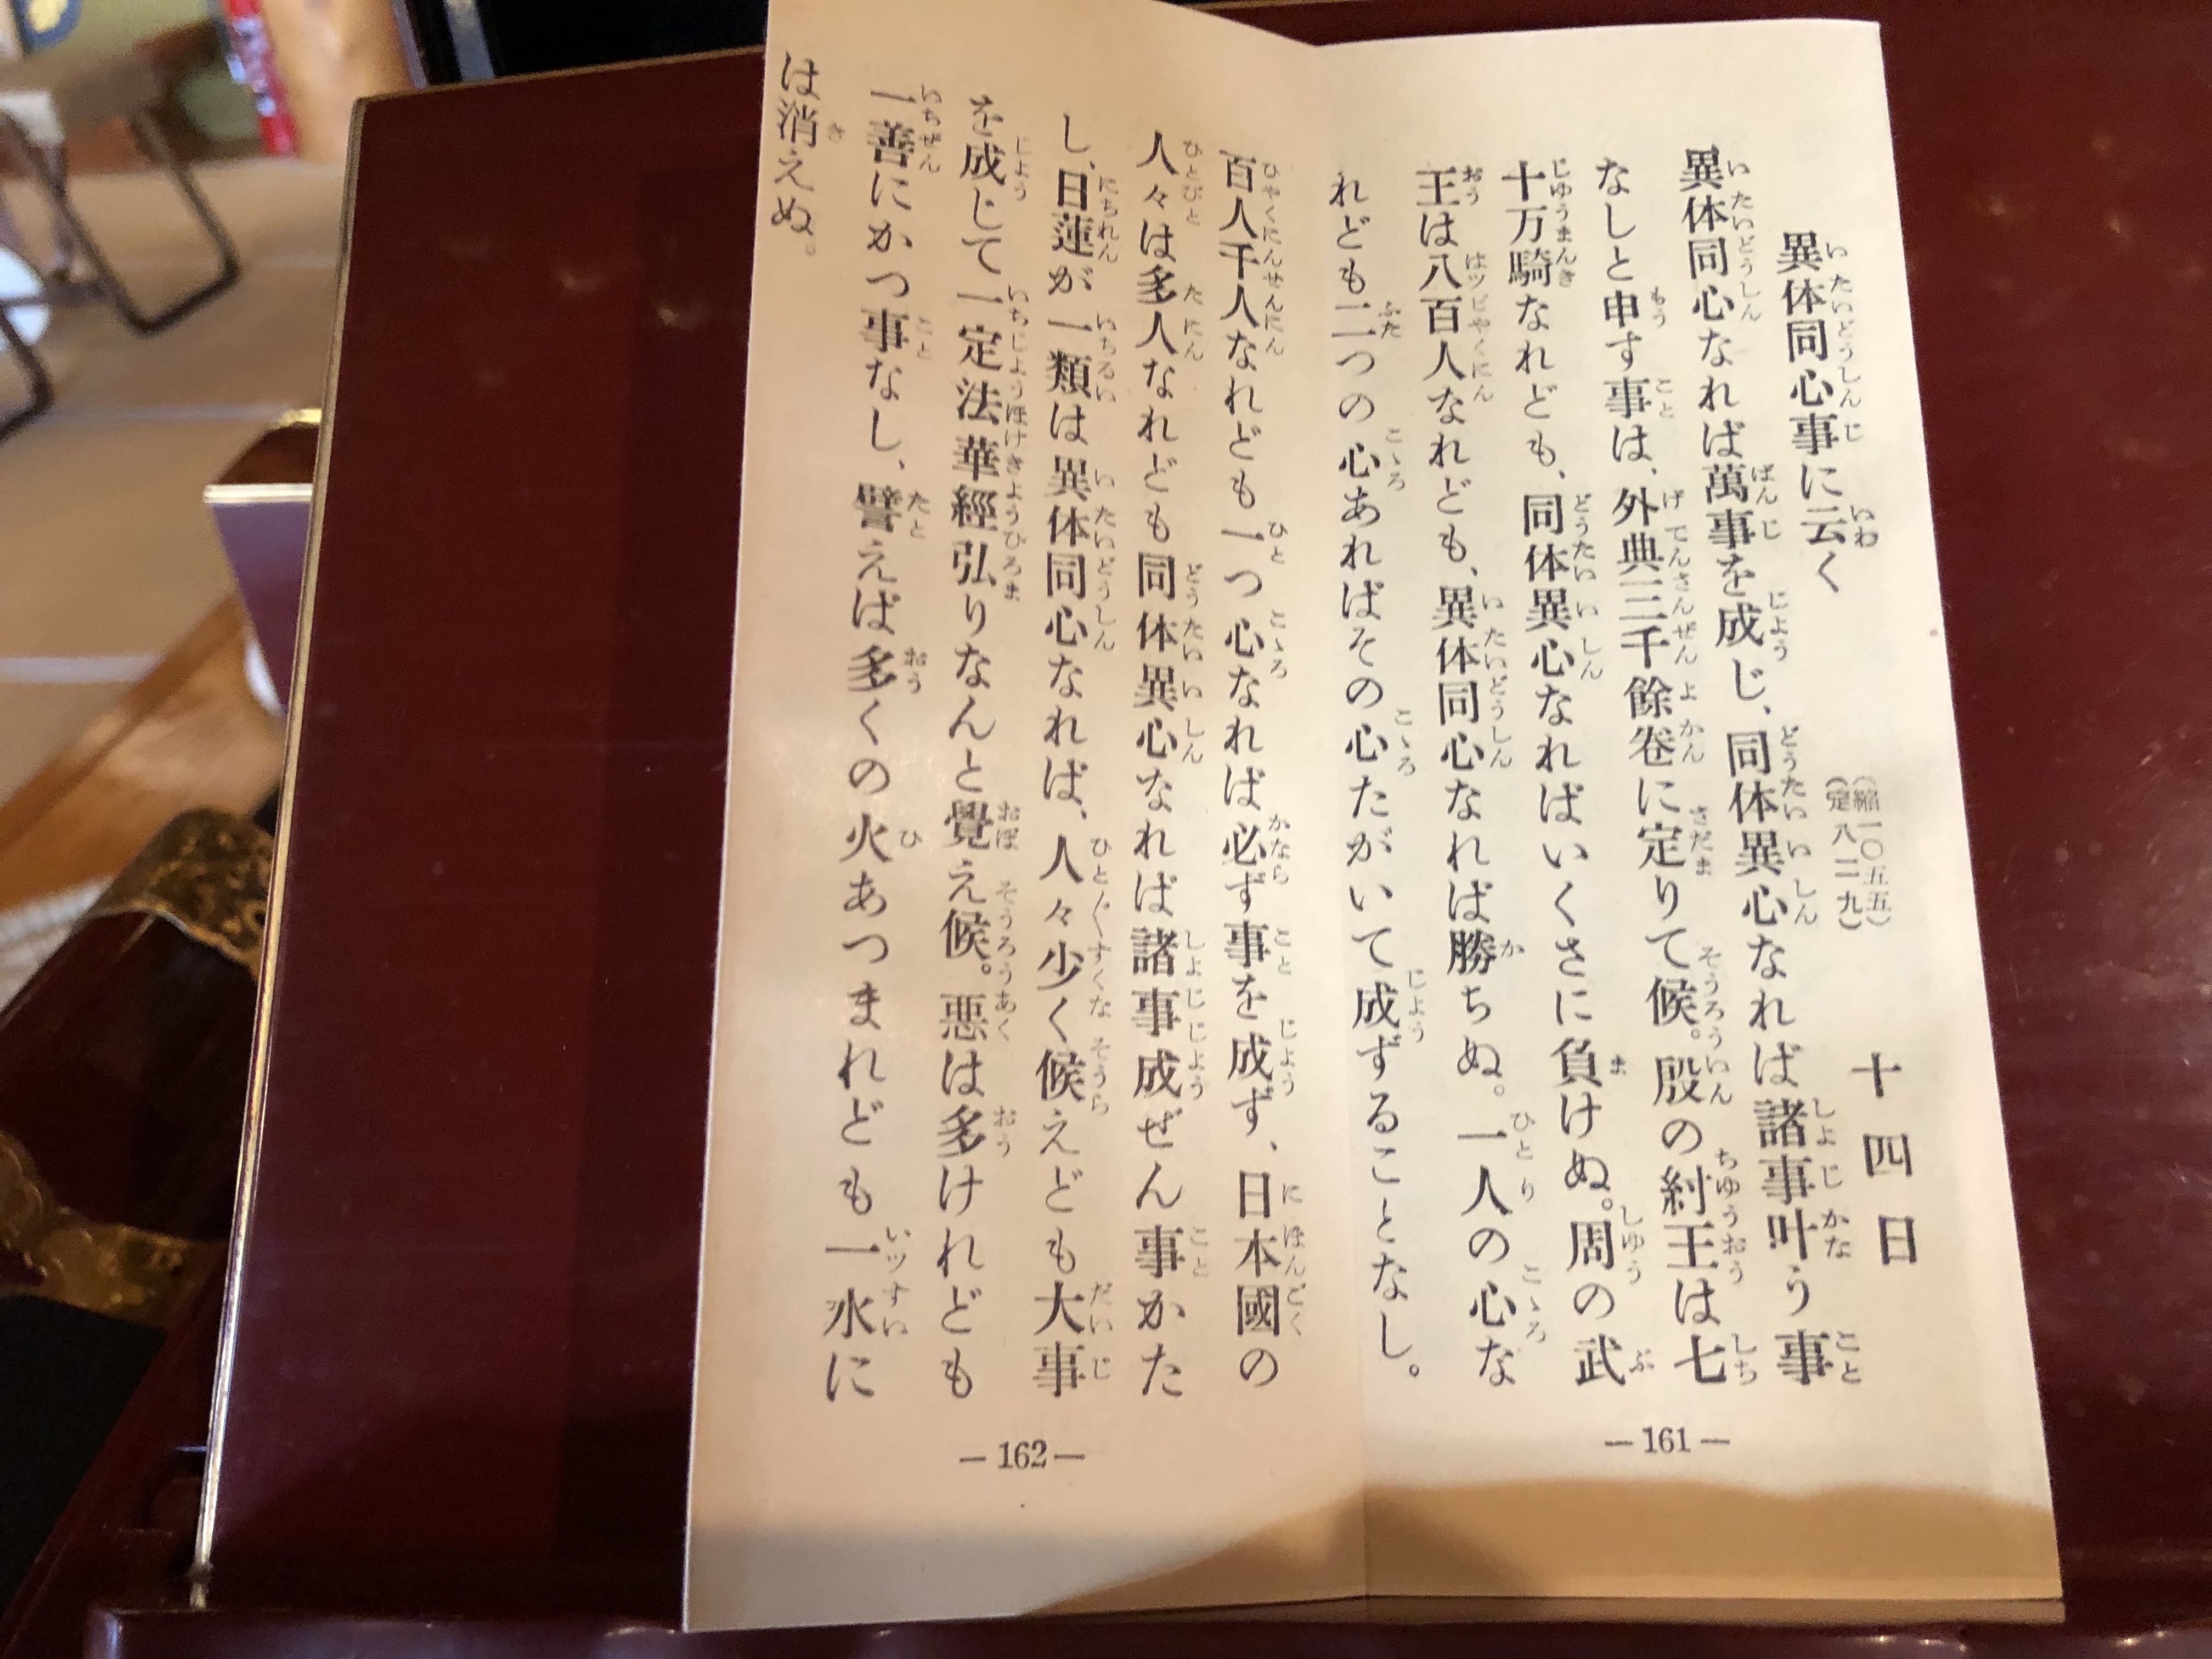 十四日
異体同心事に云く
(縮一〇五五)
(定八二九)
異体同心なれば萬事を成じ、同体異心なれば諸事叶う事
なしと申す事は、外典三千餘巻に定りて候。殷の紂王は七
十万騎なれども、同体異心なればいくさに負けぬ。周の武
王は八百人なれども、異体同心なれば勝ちぬ。一人の心な
れども二つの心あればその心たがいて成ずることなし。
—161—
百人千人なれども一つ心なれば必ず事を成ず、日本國の
人々は多人なれども同体異心なれば諸事成ぜん事かた
し、日蓮が一類は異体同心なれば、人々少く候えども大事
を成じて一定法華經弘りなんと覺え候。悪は多けれども
一善にかつ事なし、譬えば多くの火あつまれども一水に
は消えぬ。
—162—